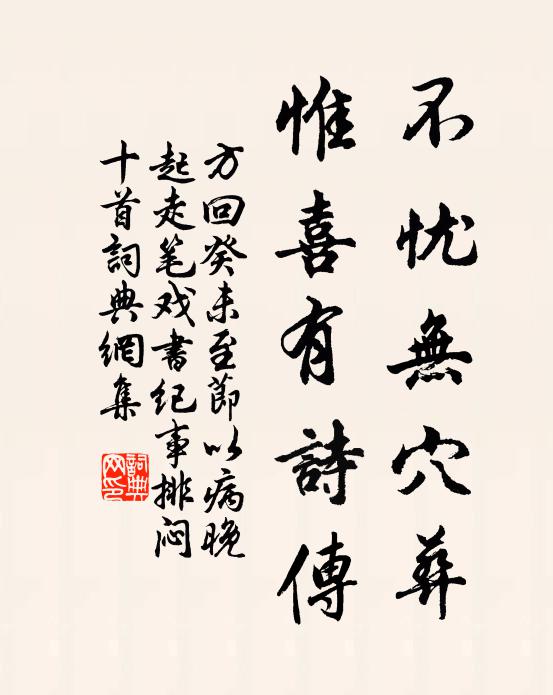 不忧無穴葬
惟喜有詩傳
方回癸未至節以病晚
起走笔戏書纪事排闷
十首詞典網集
詞典网印